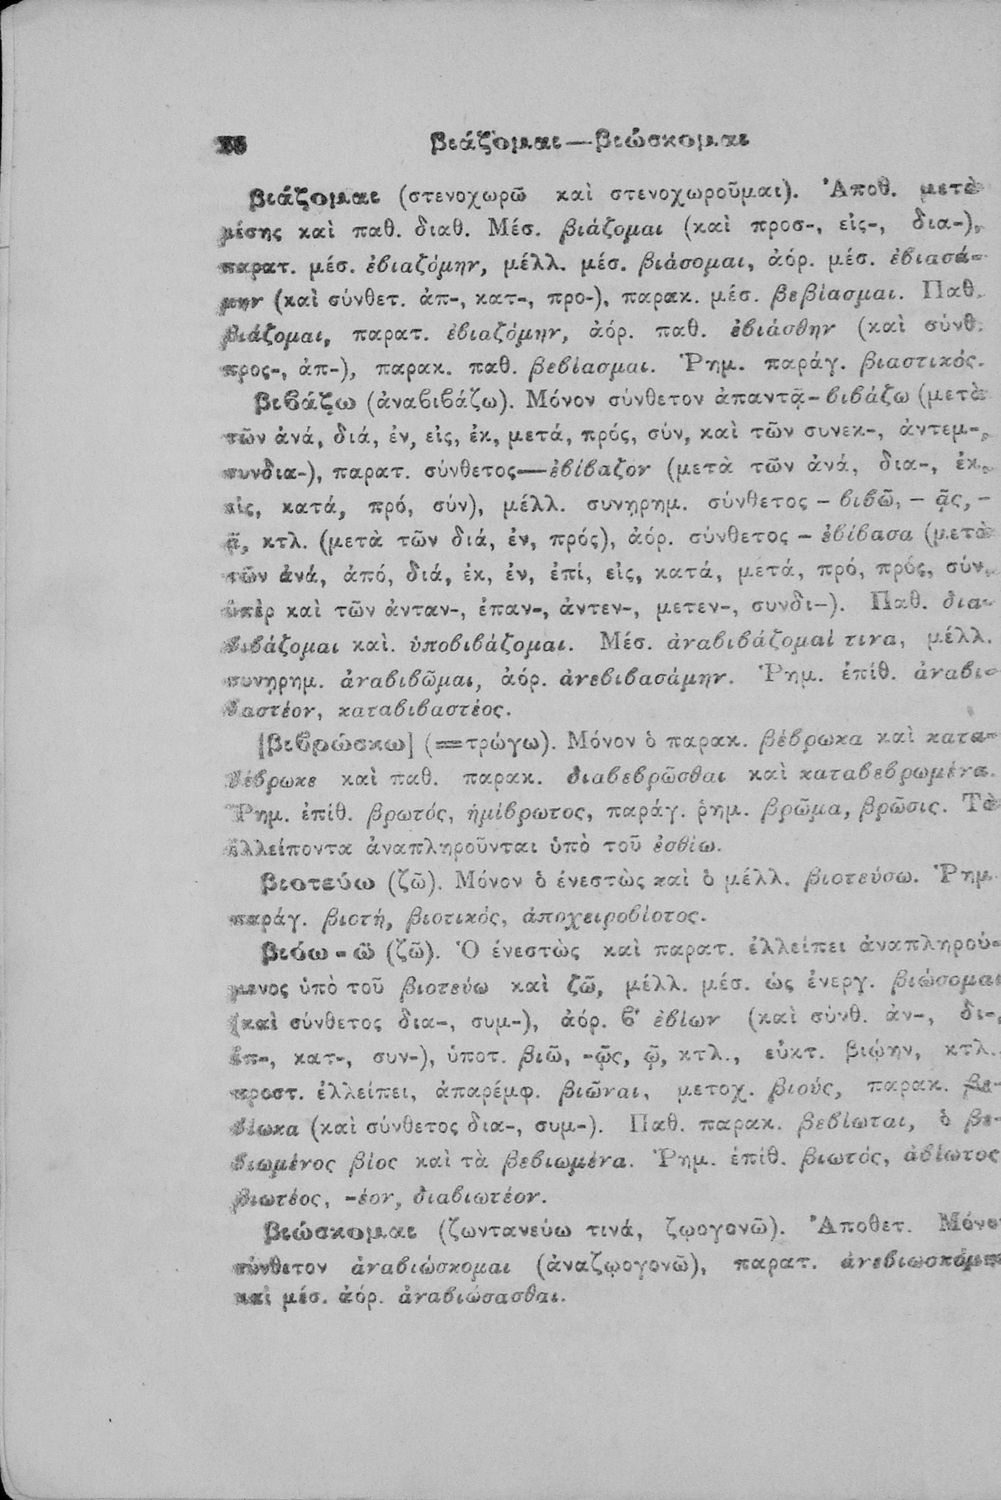 βιάζομαι — βιώσκομαι
βιάζομαι (στενοχωρῶ καὶ στενοχωροῦμαι). Ἀποθ. μετὰ
μέσης καὶ παθ. διαθ. Μέσ. βιάζομαι (καὶ προσ-, εἰς-, δια-),
παρατ. μέσ. ἐβιαζόμην, μέλλ. μέσ. βιάσομαι, ἀόρ. μέσ. ἐβιασά-
μην (καὶ σύνθετ. ἀπ-, κατ-, προ-), παρακ. μέσ. βεβίασμαι. Παθ.
βιάζομαι, παρατ. ἐβιαζόμην, ἀόρ. παθ. ἐβιάσθην (καὶ σύνθ.
προς-, ἀπ-), παρακ. παθ. βεβίασμαι. Ῥημ. παράγ. βιαστικός.
βιβάζω (ἀναβιβάζω). Μόνον σύνθετον ἀπαντᾷ - βιβάζω (μετὰ
τῶν ἀνά, διά, ἐν, εἰς, ἐκ, μετά, πρός, σύν, καὶ τῶν συνεκ-, ἀντεμ-,
συνδια-), παρατ. σύνθετος — ἐβίβαζον (μετὰ τῶν ἀνά, δια-, ἐκ,
εἰς, κατά, πρό, σύν), μέλλ. συνῃρημ. σύνθετος - βιβῶ, - ᾷς, -
ᾷ, κτλ. (μετὰ τῶν διά, ἐν, πρός), ἀόρ. σύνθετος - ἐβίβασα (μετὰ
τῶν ἀνά, ἀπό, διά, ἐκ, ἐν, ἐπί, εἰς, κατά, μετά, πρό, πρός, σύν,
ὑπὲρ καὶ τῶν ἀνταν-, ἐπαν-, ἀντεν-, μετεν-, συνδι-). Παθ. δια-
βιβάζομαι καὶ. ὑποβιβάζομαι. Μέσ. ἀναβιβάζομαί τινα, μέλλ.
συνῃρημ. ἀναβιβῶμαι, ἀόρ. ἀνεβιβασάμην. Ῥημ. ἐπίθ. ἀναβι-
βαστέον, καταβιβαστέος.
[βιβρώσκω] (=τρώγω). Μόνον ὁ παρακ. βέβρωκα καὶ κατα-
βέβρωκε καὶ παθ. παρακ. διαβεβρῶσθαι καὶ καταβεβρωμένα.
Ῥημ. ἐπίθ. βρωτός, ἡμίβρωτος, παράγ. ῥημ. βρῶμα, βρῶσις. Τὰ
ἐλλείποντα ἀναπληροῦνται ὑπὸ τοῦ ἐσθίω.
βιοτεύω (ζῶ). Μόνον ὁ ἐνεστὼς καὶ ὁ μέλλ. βιοτεύσω. Ῥημ.
παράγ. βιοτή, βιοτικός, ἀποχειροβίοτος.
βιόω - ῶ (ζῶ). Ὁ ἐνεστὼς καὶ παρατ. ἐλλείπει ἀναπληρού-
μενος ὑπὸ τοῦ βιοτεύω καὶ ζῶ, μέλλ. μέσ. ὡς ἐνεργ. βιώσομαι
(καὶ σύνθετος δια-, συμ-), ἀόρ. β' ἐβίων (καὶ σύνθ. ἀν-, δι-,
ἐπ-, κατ-, συν-), ὑποτ. βιῶ, -ῷς, ῷ, κτλ., εὐκτ. βιῴην, κτλ.
προστ. ἐλλείπει, ἀπαρέμφ. βιῶναι, μετοχ. βιούς, παρακ. βε-
βίωκα (καὶ σύνθετος δια-, συμ-). Παθ. παρακ. βεβίωται, ὁ βε-
βιωμένος βίος καὶ τὰ βεβιωμένα. Ῥημ. ἐπίθ. βιωτός, ἀβίωτος
βιωτέος, -έον, διαβιωτέον.
βιώσκομαι (ζωντανεύω τινά, ζῳογονῶ). Ἀποθετ. Μόνον
σύνθετον ἀναβιώσκομαι (ἀναζῳογονῶ), παρατ. ἀνεβιωσκόμην
καὶ μέσ. ἀόρ. ἀναβιώσασθαι.